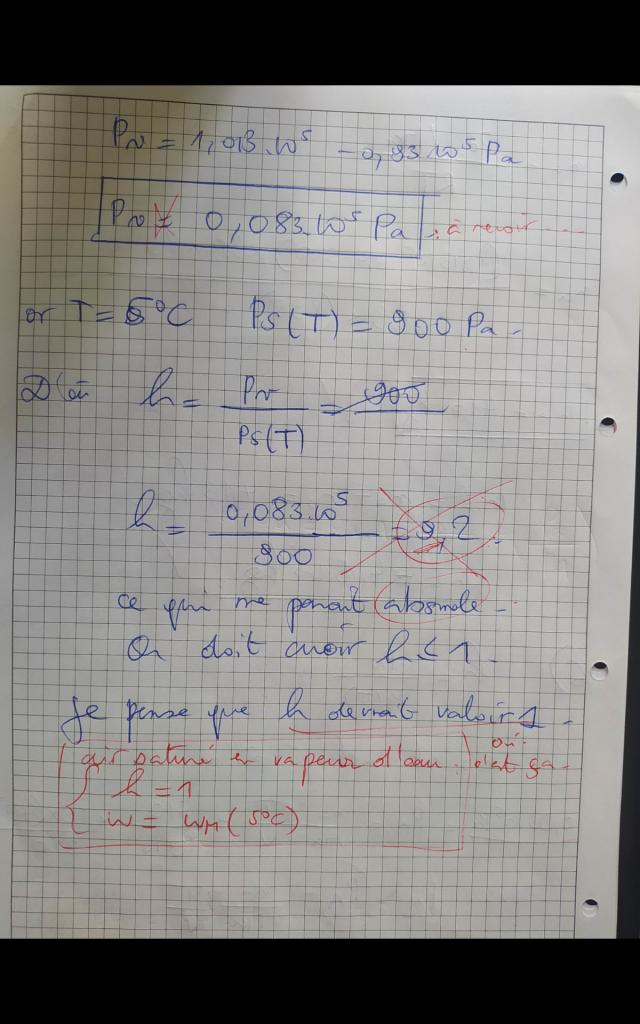 Pv = 1,013.10⁵ - 0,93 10⁵ Pa
Pv = 0,083.10⁵ Pa : à revoir ....
or T = 5°C Ps(T) = 900 Pa -
D'où h = Pv / Ps(T) = 900
h = 0,083.10⁵ / 900 = 9,2.
ce qui me parait absurde -
On doit avoir h ≤ 1.
Je pense que h devrait valoir 1.
air saturé en vapeur d'eau. oui c'est ça.
h = 1
w = wM (5°C)